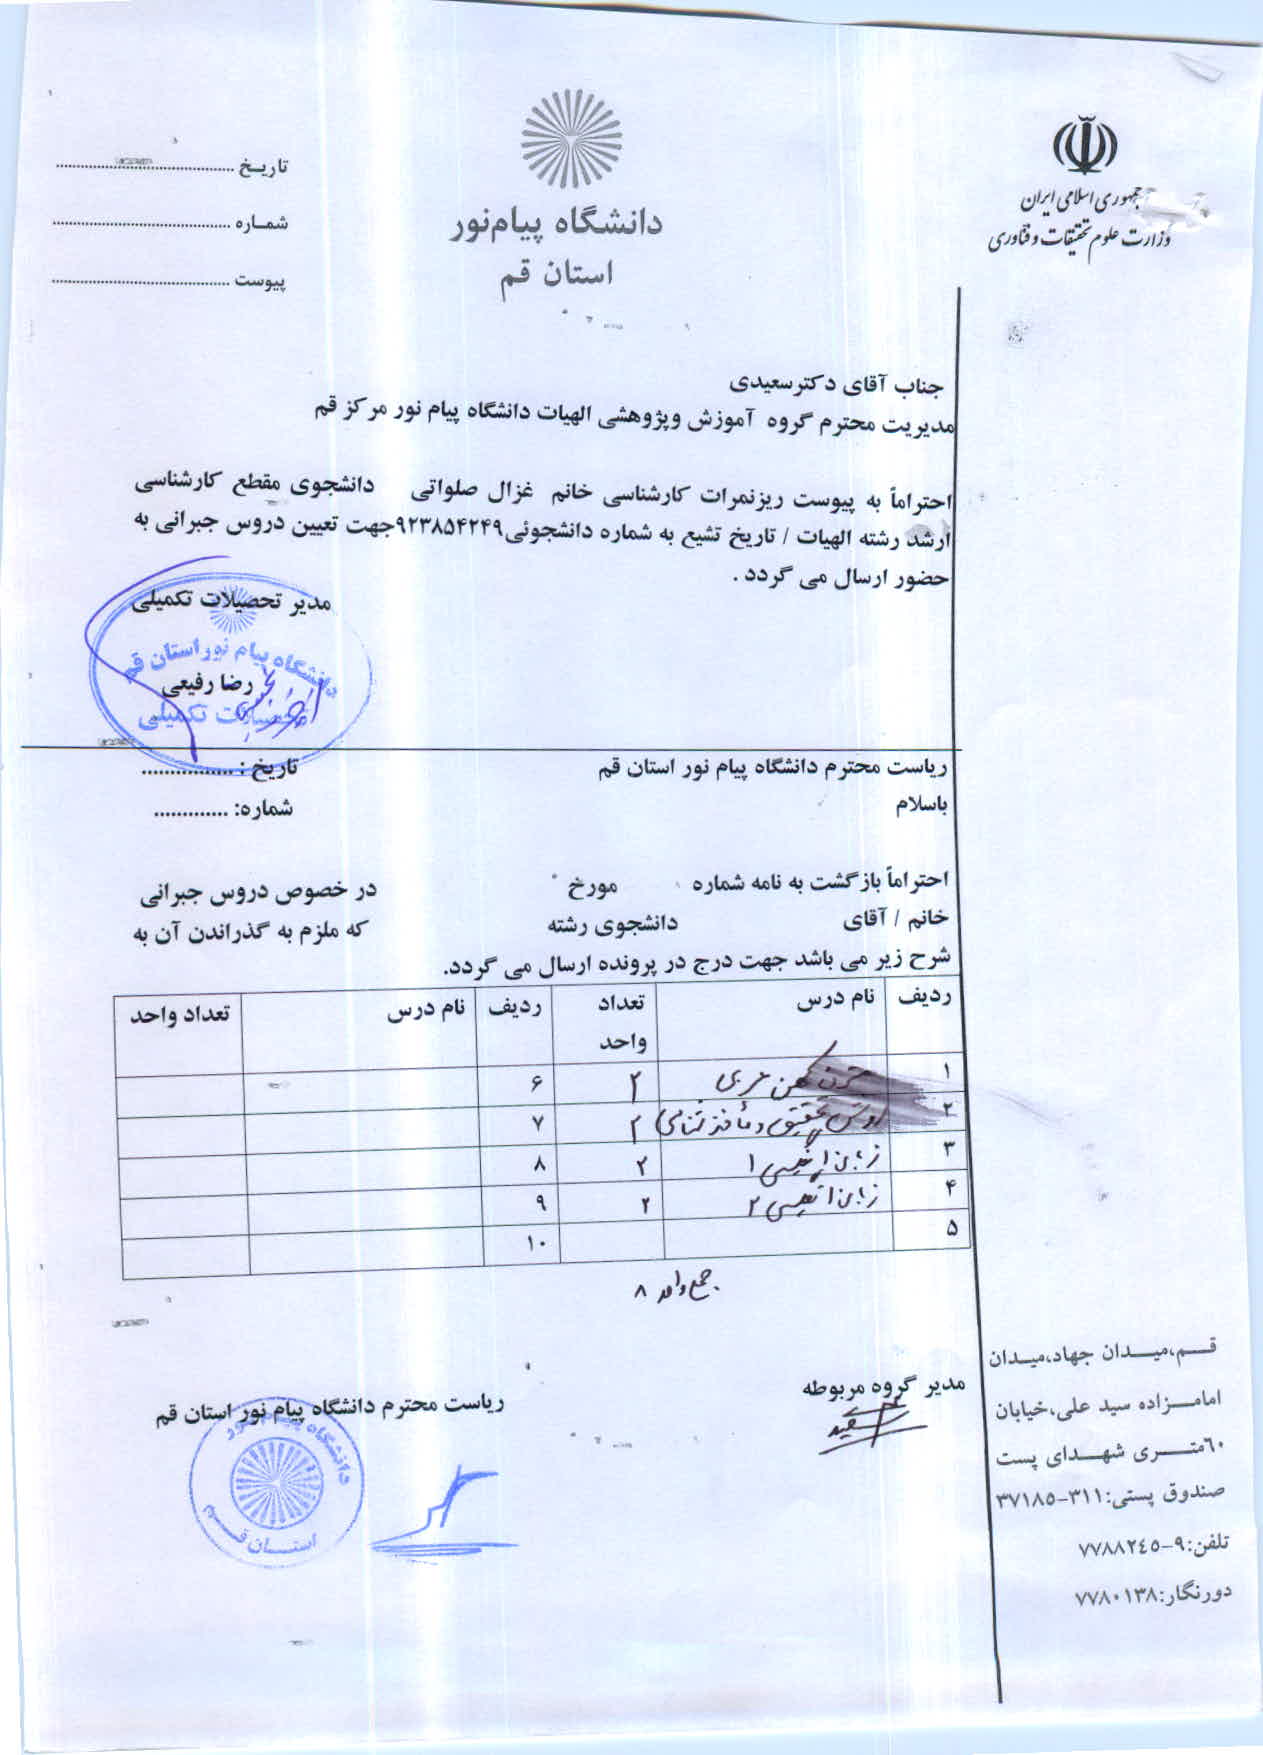 جمهوری اسلامی ایران
وزارت علوم تحقیقات و فناوری
دانشگاه پیام‌نور
استان قم
تاریـخ ........................................
شمـاره ........................................
پیوست ........................................
جناب آقای دکترسعیدی
مدیریت محترم گروه آموزش وپژوهشی الهیات دانشگاه پیام نور مرکز قم
احتراماً به پیوست ریزنمرات کارشناسی خانم غزال صلواتی دانشجوی مقطع کارشناسی
ارشد رشته الهیات / تاریخ تشیع به شماره دانشجوئی۹۲۳۸۵۴۲۴۹جهت تعیین دروس جبرانی به
حضور ارسال می گردد .
مدیر تحصیلات تکمیلی
دانشگاه پیام نور استان قم
رضا رفیعی
تحصیلات تکمیلی
ریاست محترم دانشگاه پیام نور استان قم
تاریخ : ................
باسلام
شماره: .............
احتراماً بازگشت به نامه شماره مورخ در خصوص دروس جبرانی
خانم / آقای دانشجوی رشته که ملزم به گذراندن آن به
شرح زیر می باشد جهت درج در پرونده ارسال می گردد.
ردیف نام درس تعداد واحد ردیف نام درس تعداد واحد
۱ متون کهن عربی ۲ ۶
۲ روش تحقیق و مأخذ شناسی ۲ ۷
۳ زبان انگلیسی ۱ ۲ ۸
۴ زبان انگلیسی ۲ ۲ ۹
۵ ۱۰
جمع واحد ۸
مدیر گروه مربوطه
ریاست محترم دانشگاه پیام نور استان قم
دانشگاه پیام نور
استـان قـم
قـــم،میــدان جهاد،میـدان
امامـــزاده سید علی،خیابان
٦٠متــــری شهــدای پست
صندوق پستی:۳۱۱-۳۷۱۸٥
تلفن:۹-۷۷۸۸۲٤٥
دورنگار:۷۷۸۰۱۳۸